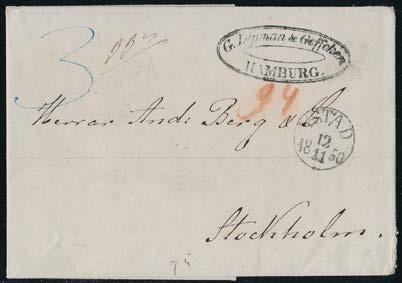 3
G. Lipman & Geffcken
HAMBURG.
94
Herrar And: Berg & C
YSTAD
12
18 11 50
Stockholm.